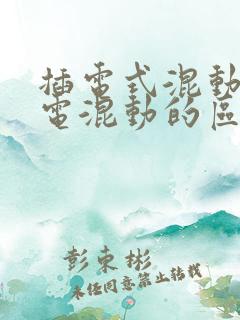 插電式混動
電混動的區
彭東彬
未任同意禁止转载